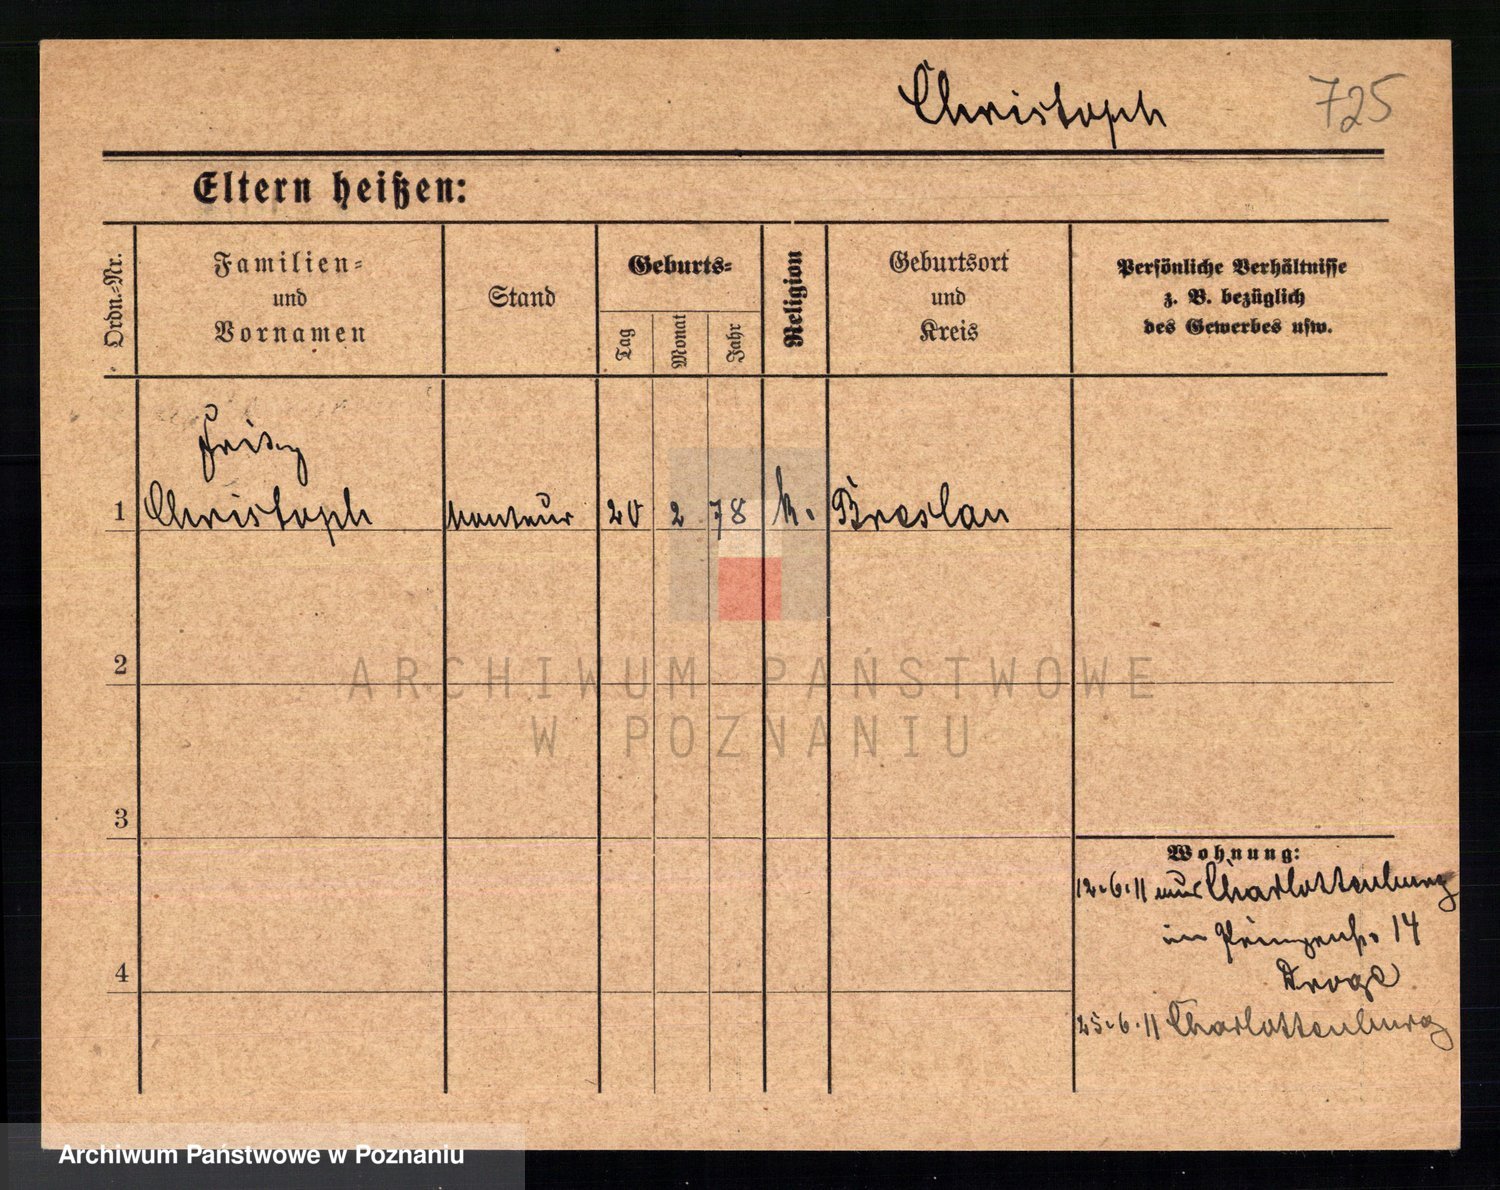 Christoph
725
Eltern heißen:
Ordn.-Nr.
Familien-
und
Vornamen
Stand
Geburts-
Tag
Monat
Jahr
Religion
Geburtsort
und
Kreis
Persönliche Verhältnisse
z. B. bezüglich
des Gewerbes usw.
Fritz
1 Christoph Monteur 20 2 78 k. Breslau
2
3
4
Wohnung:
12.6.11 aus Charlottenburg
in Prinzenstr. 14
Droge
25.6.11 Charlottenburg
ARCHIWUM PAŃSTWOWE
W POZNANIU
Archiwum Państwowe w Poznaniu